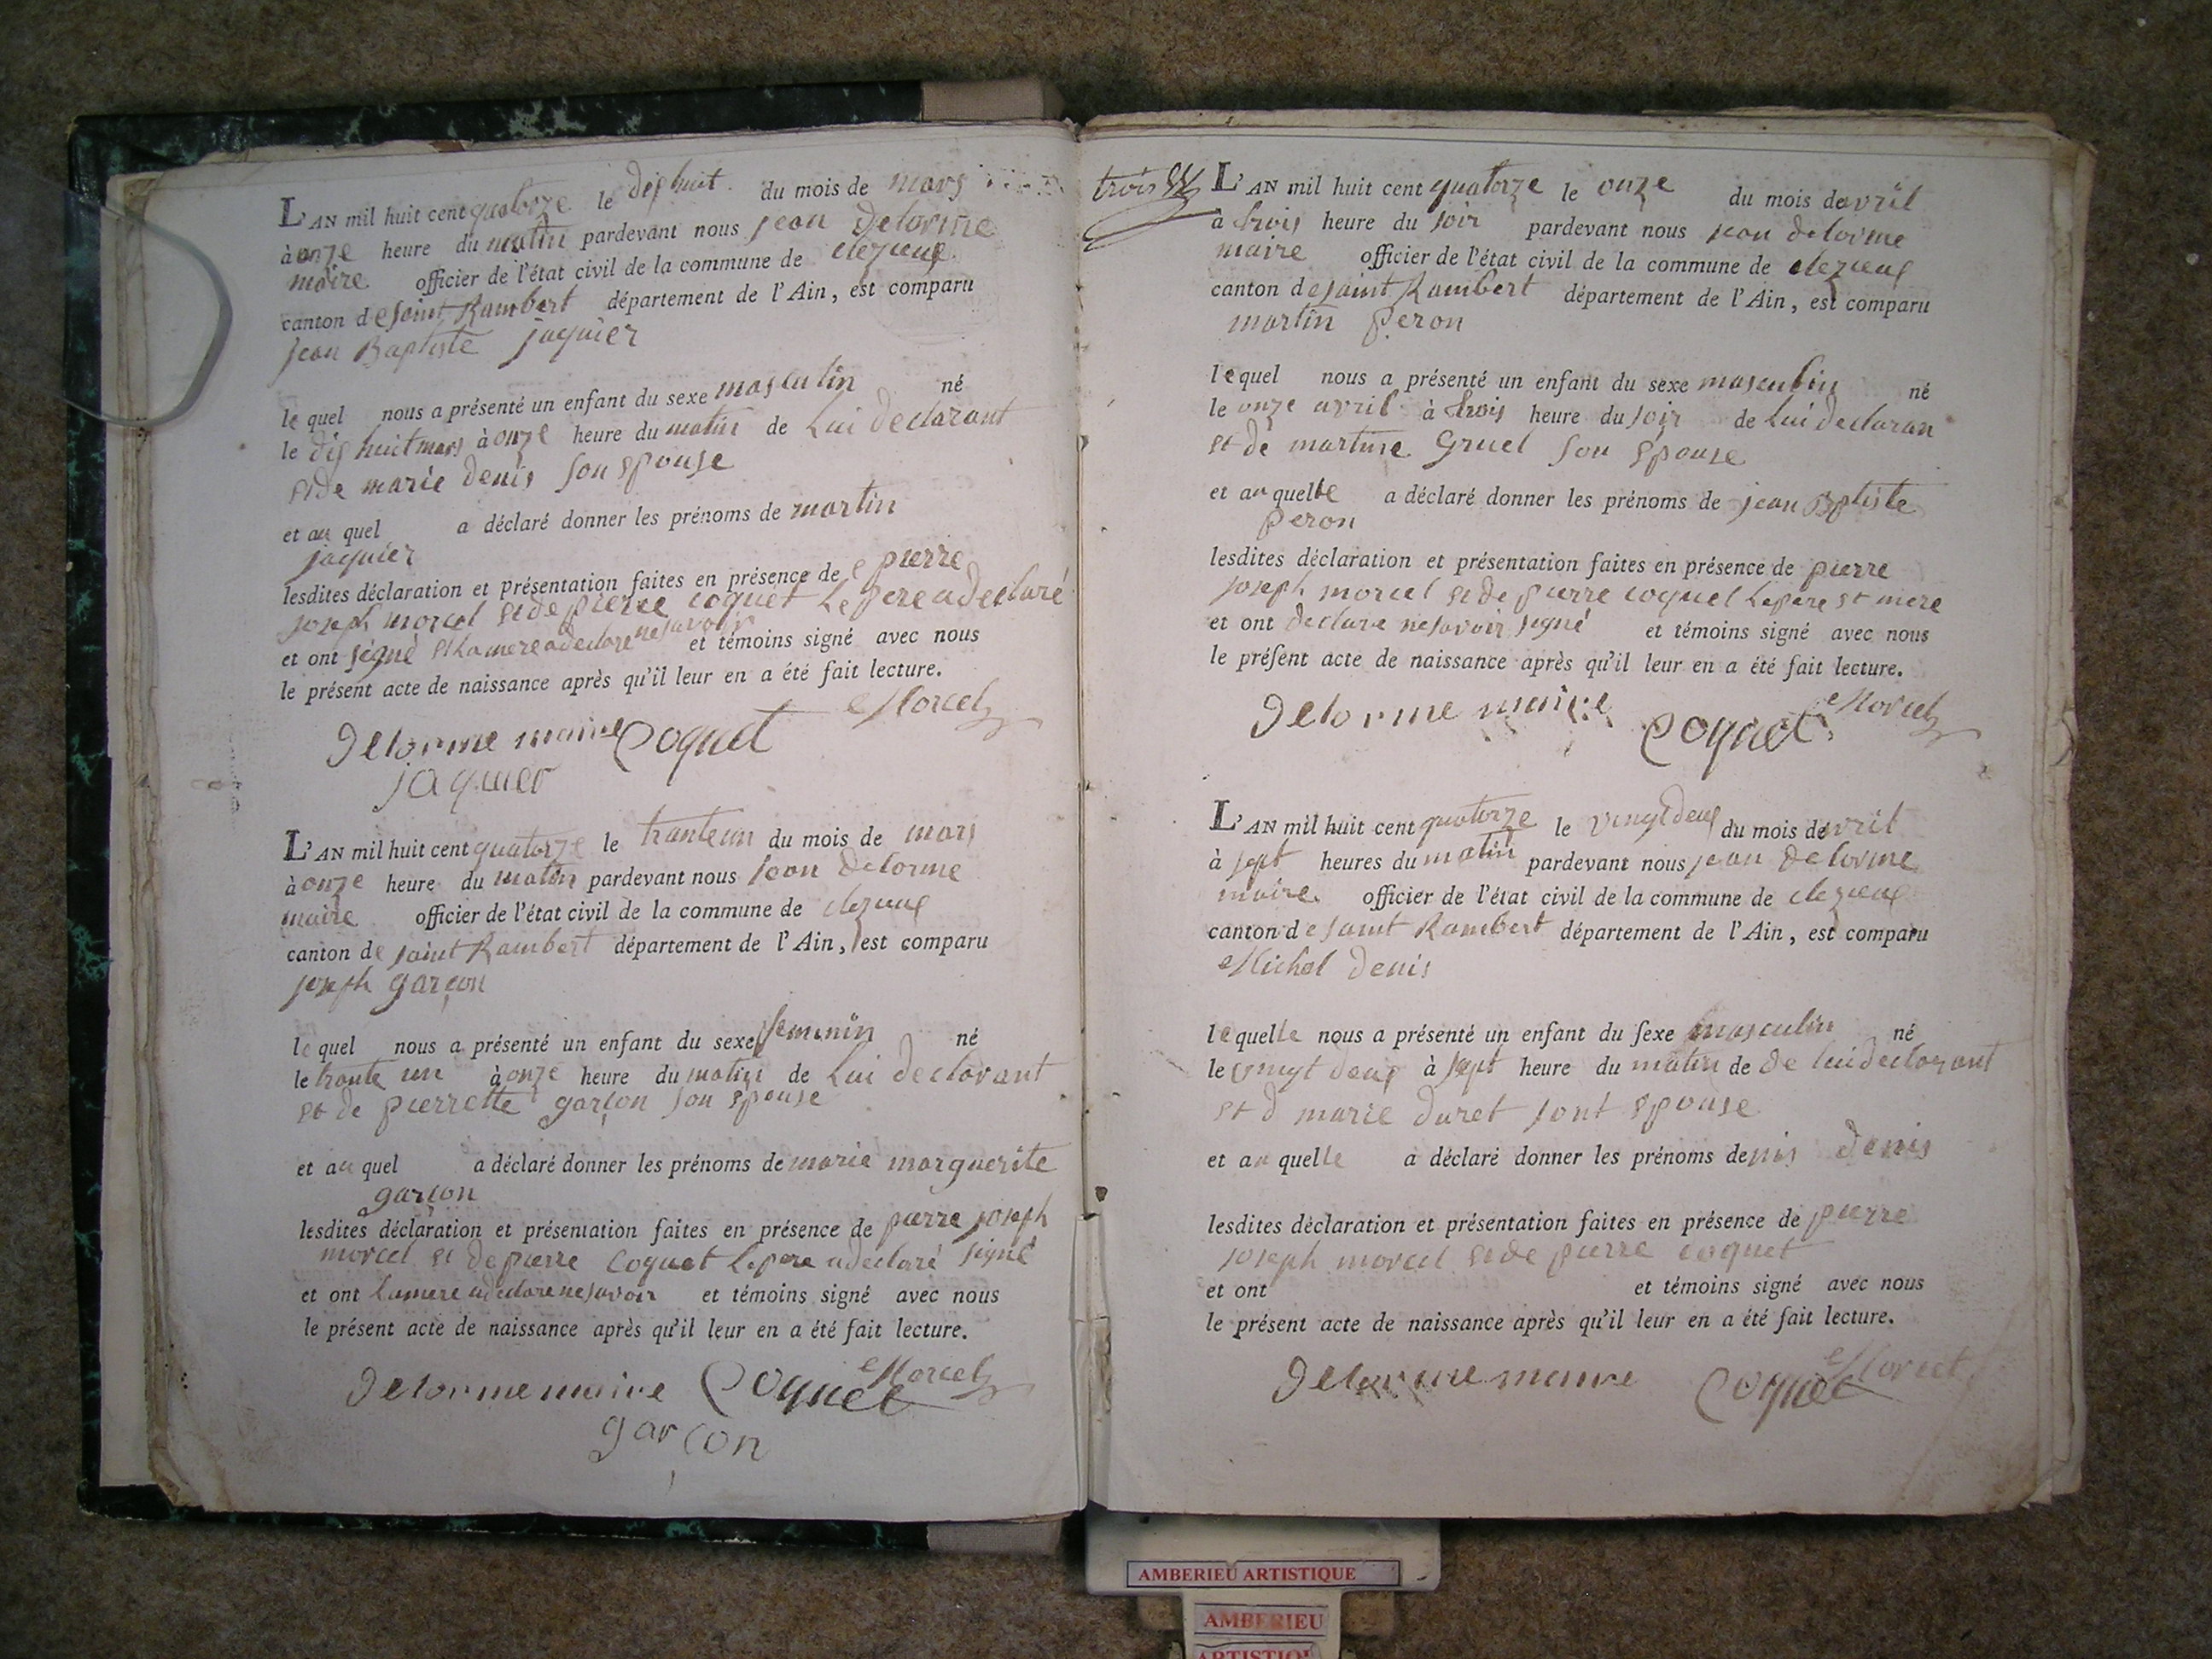 L'AN mil huit cent quatorze le dishuit du mois de mars
à onze heure du matin pardevant nous jean Delorme
maire officier de l'état civil de la commune de clezieux
canton de saint Rambert département de l'Ain, est comparu
jean Baptiste jaquier
le quel nous a présenté un enfant du sexe masculin né
le dis huit mars à onze heure du matin de Lui declarant
et de marie denis son epouse
et au quel a déclaré donner les prénoms de martin
jaquier
lesdites déclaration et présentation faites en présence de pierre
joseph morcel et de pierre coquet Le pere a declaré
et ont signé et La mere a declare ne savoir et témoins signé avec nous
le présent acte de naissance après qu'il leur en a été fait lecture.
Delorme maire Coquet Morcel
jaquier
L'AN mil huit cent quatorze le trante un du mois de mars
à onze heure du matin pardevant nous jean Delorme
maire officier de l'état civil de la commune de clezieux
canton de saint Rambert département de l'Ain, est comparu
joseph garçon
le quel nous a présenté un enfant du sexe feminin né
le trante un à onze heure du matin de Lui declarant
et de pierrette garçon son epouse
et au quel a déclaré donner les prénoms de marie marguerite
garçon
lesdites déclaration et présentation faites en présence de pierre joseph
morcel et de pierre Coquet Le pere a declaré signé
et ont La mere a declare ne savoir et témoins signé avec nous
le présent acte de naissance après qu'il leur en a été fait lecture.
Delorme maire Coquet Morcel
garçon
trois
L'AN mil huit cent quatorze le onze du mois de avril
à trois heure du soir pardevant nous jean delorme
maire officier de l'état civil de la commune de clezieux
canton de saint Rambert département de l'Ain, est comparu
martin peron
le quel nous a présenté un enfant du sexe masculin né
le onze avril à trois heure du soir de Lui declaran
et de martine Gruel son epouse
et au quelle a déclaré donner les prénoms de jean Bptiste
peron
lesdites déclaration et présentation faites en présence de pierre
joseph morcel et de pierre coquet Le pere et mere
et ont declare ne savoir signé et témoins signé avec nous
le présent acte de naissance après qu'il leur en a été fait lecture.
Delorme maire Coquet Morcel
L'AN mil huit cent quatorze le vingt deux du mois de avril
à sept heures du matin pardevant nous jean delorme
maire officier de l'état civil de la commune de clezieux
canton de saint Rambert département de l'Ain, est comparu
Michel denis
le quelle nous a présenté un enfant du sexe masculin né
le vingt deux à sept heure du matin de de lui declarant
et d marie duret sont epouse
et au quelle a déclaré donner les prénoms de nis denis
lesdites déclaration et présentation faites en présence de pierre
joseph morcel et de pierre coquet
et ont et témoins signé avec nous
le présent acte de naissance après qu'il leur en a été fait lecture.
Delorme maire Coquet Morcel
AMBERIEU ARTISTIQUE
AMBERIEU